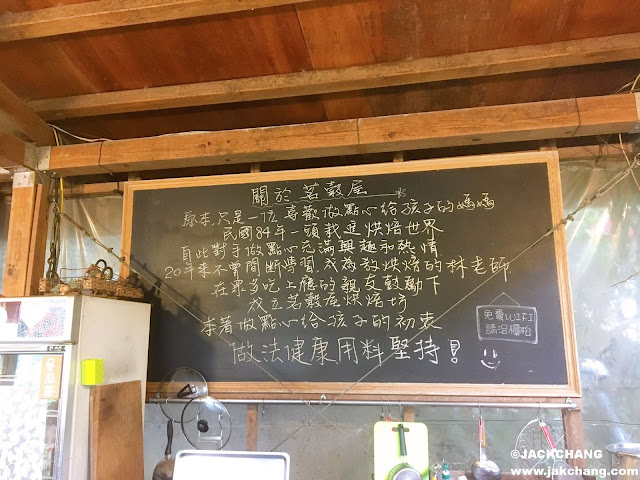 關於茗穀屋
原來,只是一位喜歡做點心給孩子的媽媽
民國84年一頭栽進烘焙世界
自此對手做點心充滿興趣和熱情
20年來不曾間斷學習.成為教烘焙的林老師
在眾多吃上癮的親友鼓勵下
成立茗穀屋烘焙坊
本著做點心給孩子的初衷
做法健康用料堅持!
免費WIFI
請洽櫃枱
©JACKCHANG
www.jakchang.com